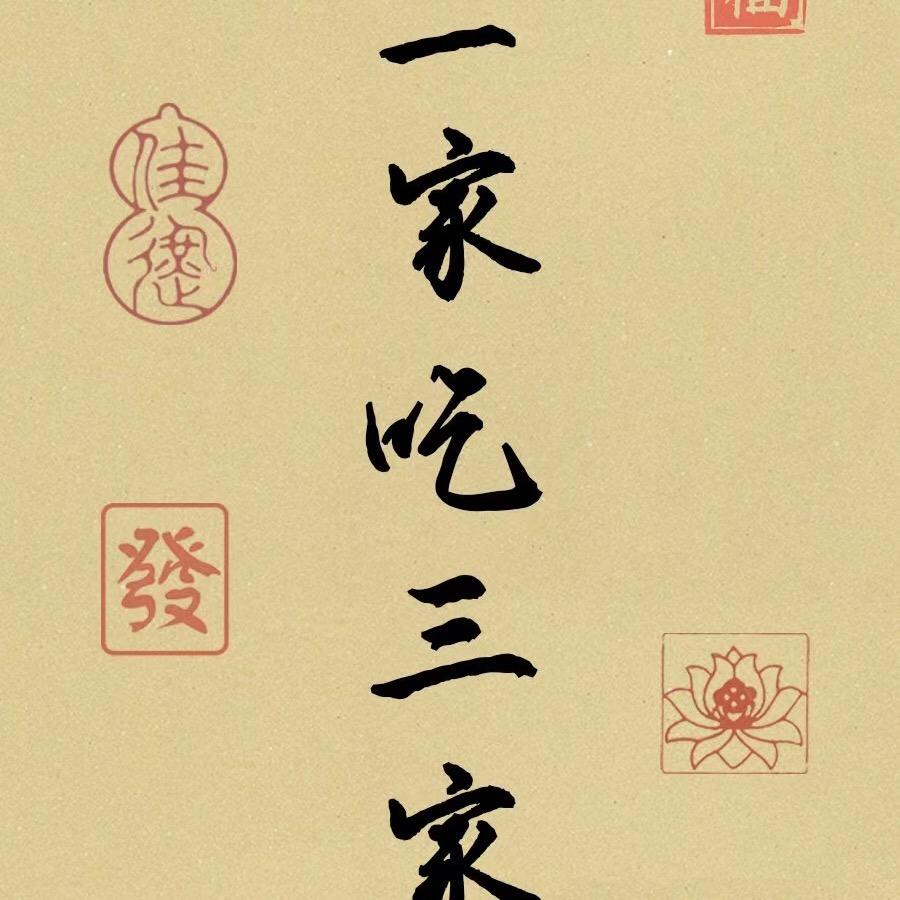 一家吃三家
佳德
發